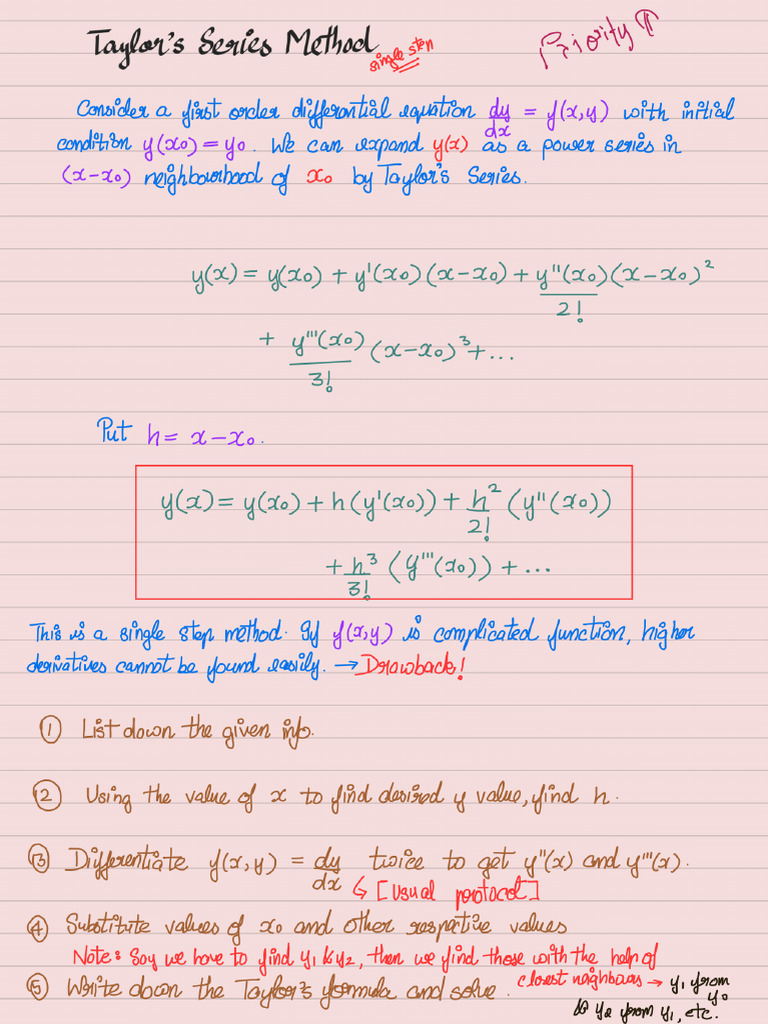 Taylor's Series Method
single step
Priority ⇑
Consider a first order differential equation dy/dx = f(x,y) with initial
condition y(x₀) = y₀. We can expand y(x) as a power series in
(x-x₀) neighbourhood of x₀ by Taylor's Series.
y(x) = y(x₀) + y'(x₀)(x-x₀) + y''(x₀)/2! (x-x₀)²
+ y'''(x₀)/3! (x-x₀)³ + ...
Put h = x-x₀.
y(x) = y(x₀) + h(y'(x₀)) + h²/2! (y''(x₀))
+ h³/3! (y'''(x₀)) + ...
This is a single step method. If f(x,y) is complicated function, higher
derivatives cannot be found easily. → Drawback!
① List down the given info.
② Using the value of x to find desired y value, find h.
③ Differentiate f(x,y) = dy/dx twice to get y''(x) and y'''(x).
↳ [Usual protocol]
④ Substitute values of x₀ and other respective values
Note: Say we have to find y₁ & y₂, then we find those with the help of
closest neighbours → y₁ from y₀
⑤ Write down the Taylor's formula and solve.
& y₂ from y₁, etc.